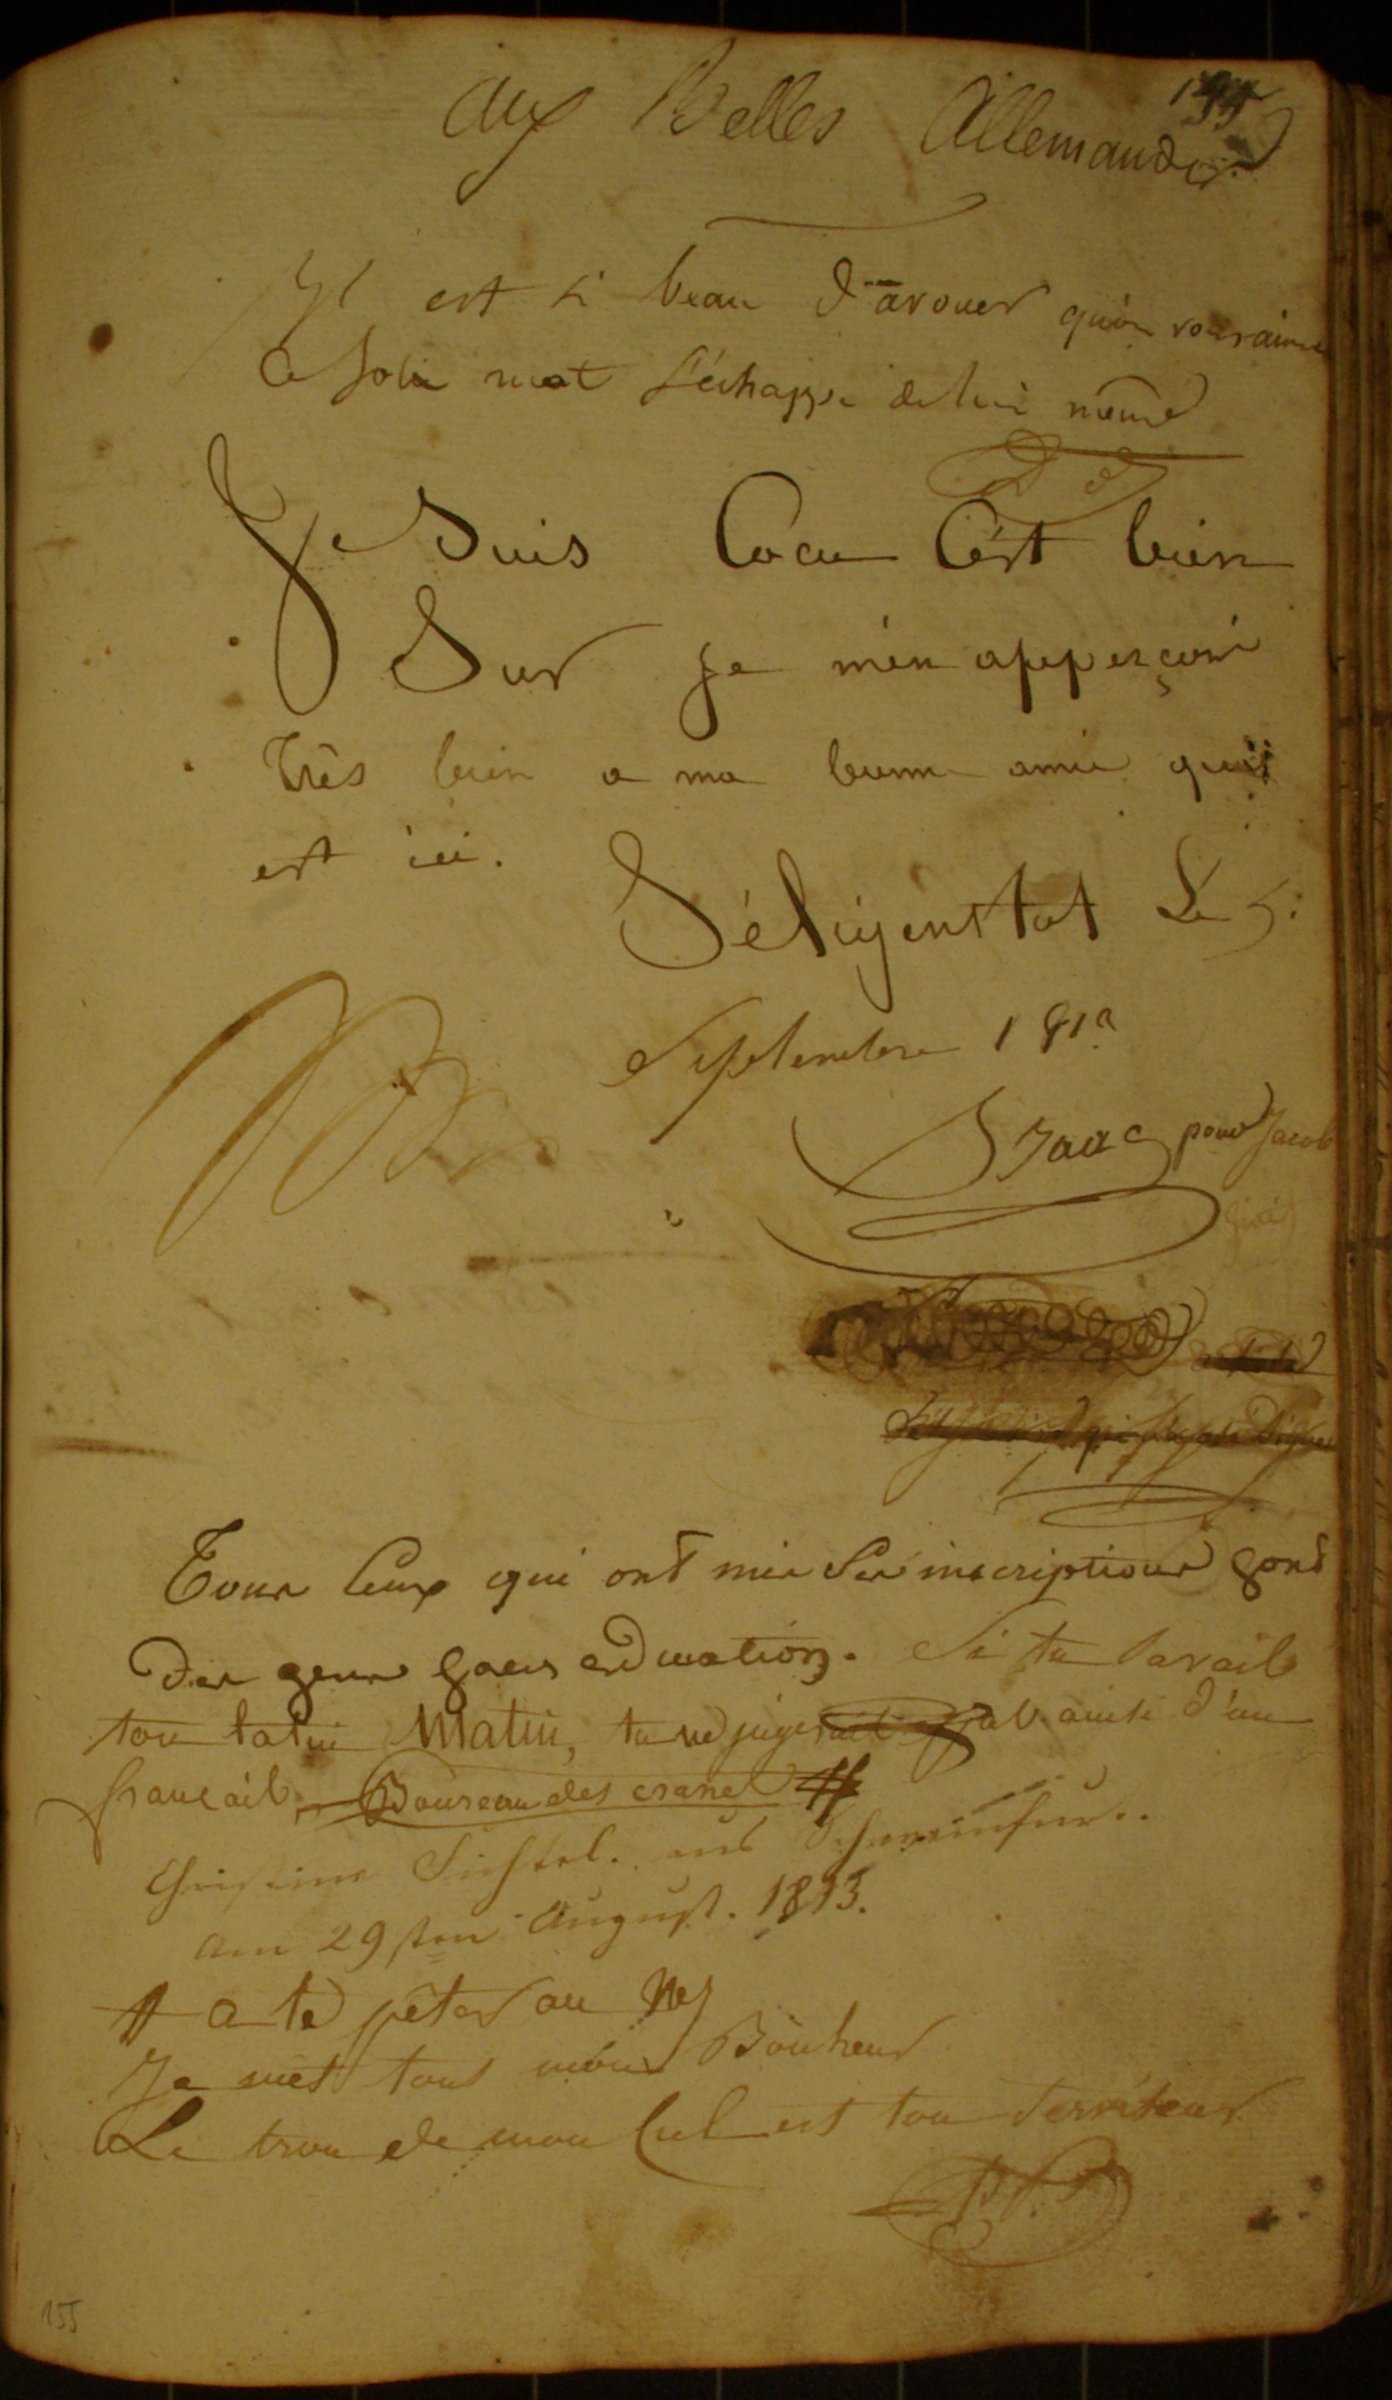 155
aux Belles Allemandes
Il est si beau d'avouer qu'on vous aime
Ce Joli mot s'échappe de lui même
Je Suis Cocu C'est bien
Sur je m'en apperçoi
Très bien a ma bonne amie qui
est ici.
Séligenstat Le 5:
Septembre 181
Isaac pour Jacob
Tous Ceux qui ont mis Ses inscriptions sont
des gens sans education. Si tu savais
ton latin Matin, tu ne jugerait pas ainsi d'un
français. Boureau des cranes #
Christine Sichtel. aus Schweinfurt.
am 29sten August. 1813.
# a te pêter au Nez
Je mêt tout mon Bonheur
Le trou de mon Cul est ton Serviteur
155